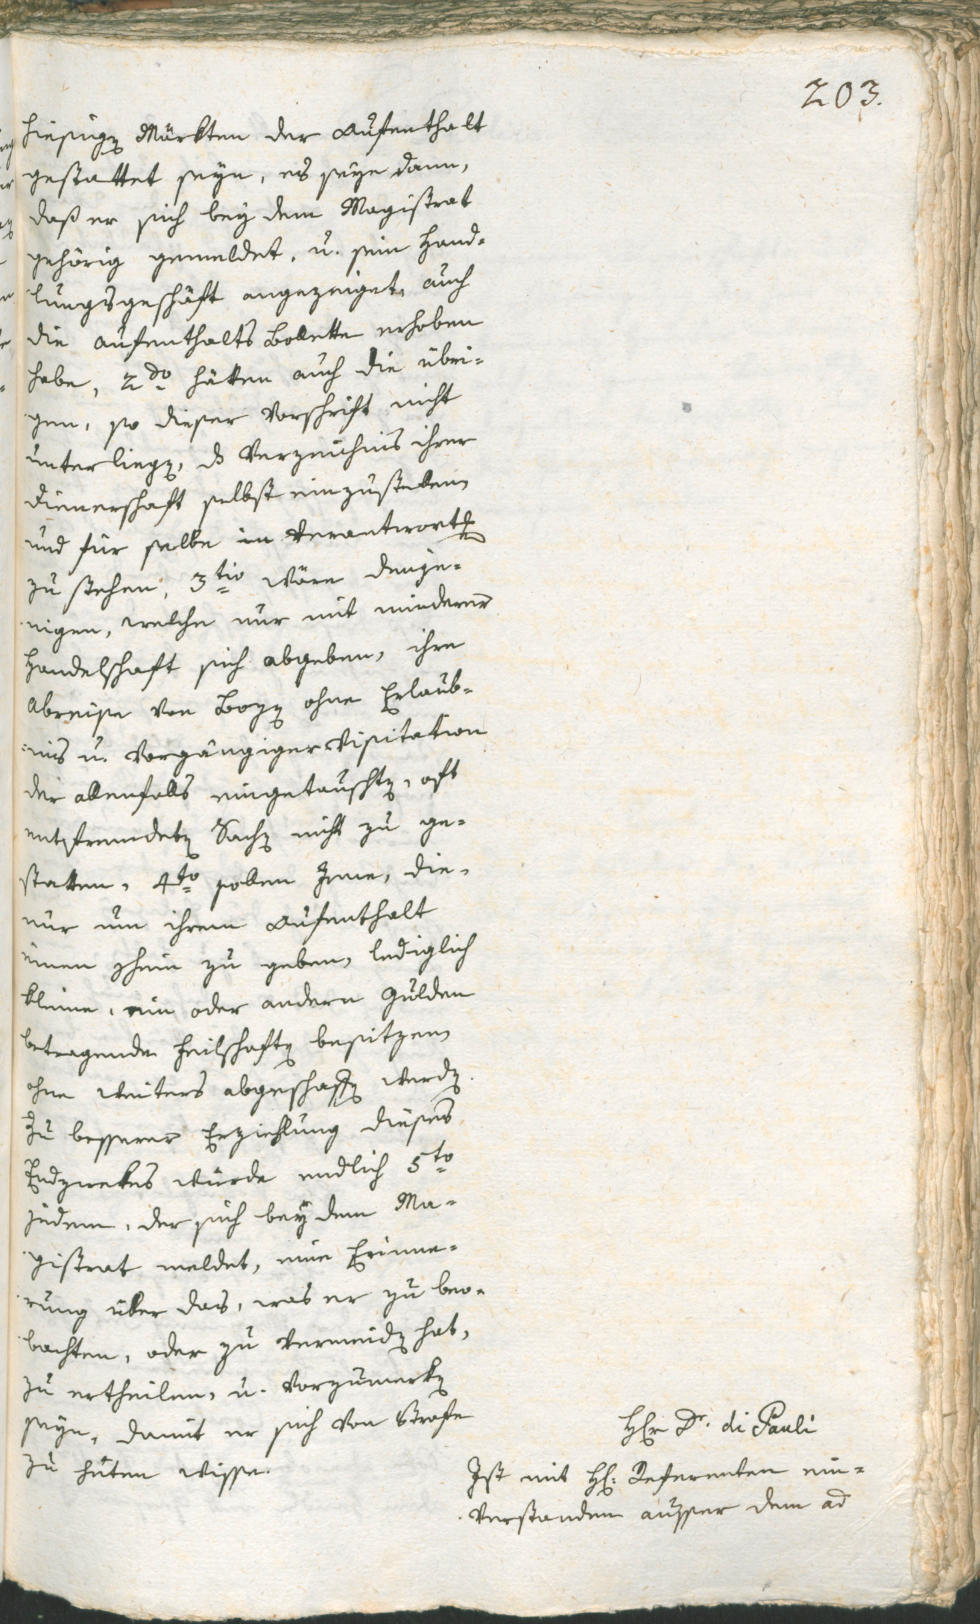 203.
hiesigen Märkten der Aufenthalt
gestattet seyn, es seye dann,
daß er sich bey dem Magistrat
gehörig gemeldet, u. sein Hand-
lungsgeschäft angezeiget, auch
die Aufenthalts Bolette erhoben
habe, 2do hätten auch die übri-
gen, so dieser Vorschrift nicht
unterliegen, das Verzeichnis ihrer
Dienerschaft selbst einzustellen,
und für selbe in Verantwortung
zu stehen, 3tio wäre denje-
nigen, welche nur mit minderer
Handelschaft sich abgeben, ihre
Abreise von Bozen ohne Erlaub-
nis u. vorgängiger Visitation
der allenfalls eingetauschten, oft
entfremdeten Sachen nicht zu ge-
statten, 4to sollen Jene, die
nur um ihrem Aufenthalt
einen Schein zu geben, lediglich
kleine, ein oder andern Gulden
betragende Feilschaften besitzen,
ohne weiters abgeschaffen werden.
Zu besserer Erziehlung dieses
Endzwekes würde endlich 5to
jedem, der sich bey dem Ma-
gistrat meldet, eine Erinne-
rung über das, was er zu beo-
bachten, oder zu vermeiden hat,
zu ertheilen, u. vorzumerken
seyn, damit er sich von Strafe
zu hüten wisse.
Hr Dr. di Pauli
Ist mit H: Referenten ein-
verstanden ausser dem ad